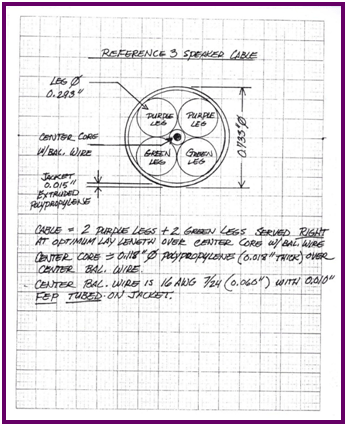 REFERENCE 3 SPEAKER CABLE
LEG Ø
0.293"
PURPLE LEG
PURPLE LEG
0.735" Ø
CENTER CORE
W/BAL. WIRE
GREEN LEG
GREEN LEG
JACKET
0.015"
EXTRUDED
POLYPROPYLENE
CABLE = 2 PURPLE LEGS + 2 GREEN LEGS SERVED RIGHT
AT OPTIMUM LAY LENGTH OVER CENTER CORE W/BAL. WIRE
CENTER CORE = 0.118" Ø POLYPROPYLENE (0.018" THICK) OVER
CENTER BAL. WIRE.
CENTER BAL. WIRE IS 16 AWG 7/24 (0.060") WITH 0.010"
FEP TUBED-ON JACKET.